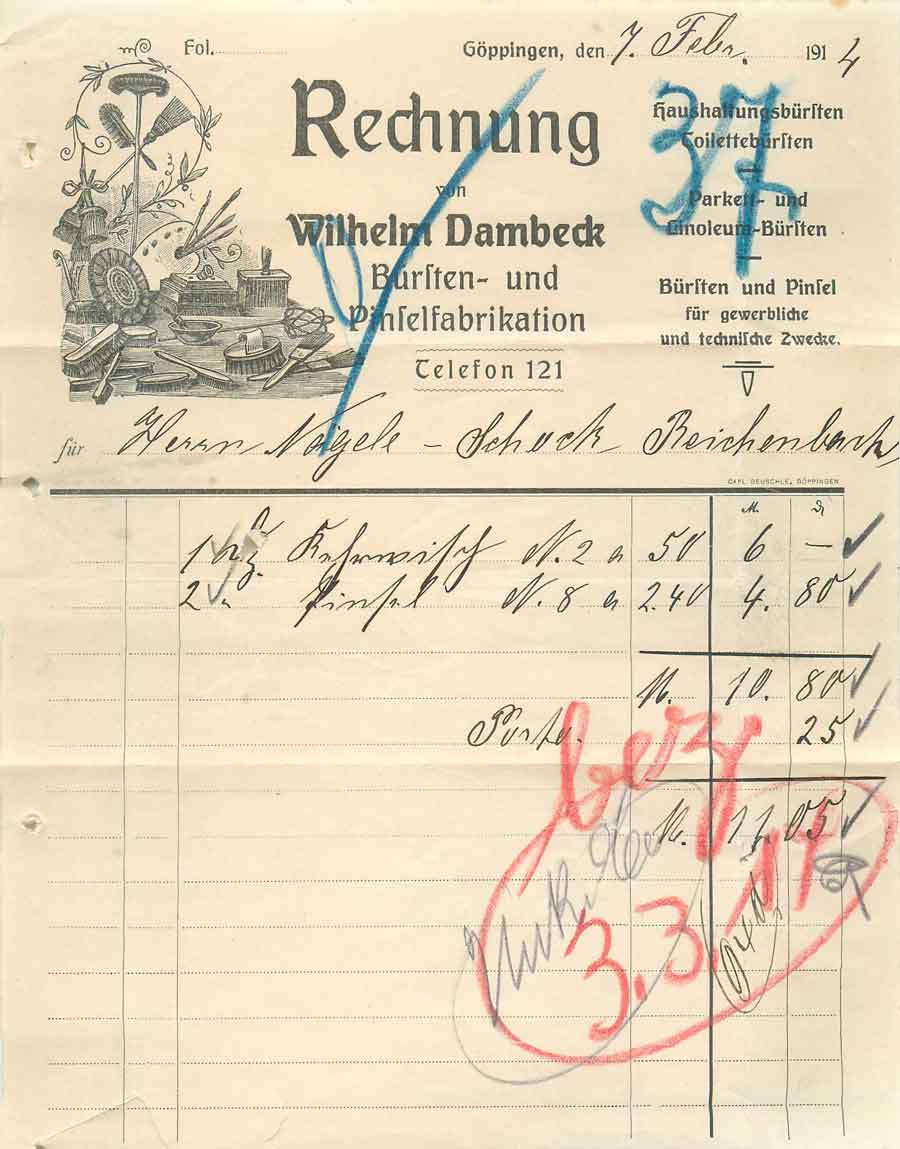 Fol.
Göppingen, den 7. Febr. 1914
Rechnung
von
Wilhelm Dambeck
Bürsten- und
Pinselfabrikation
Telefon 121
Haushaltungsbürsten
Toilettebürsten
Parkett- und
Linoleum-Bürsten
Bürsten und Pinsel
für gewerbliche
und technische Zwecke.
37
für Herrn Nägele - Schock Reichenbach
CARL BEUSCHLE, GÖPPINGEN
M. ₰
1 Dz. Kehrwisch N. 2 a 50 6 —
2 " Pinsel N. 8 a 2.40 4. 80
M. 10. 80
Porto. 25
M. 11. 05
bez
3.3.14